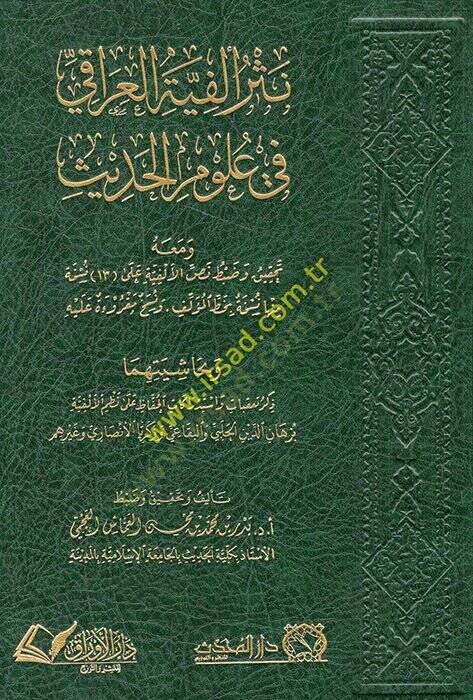 نثر ألفية العراقي
في علوم الحديث
ومعه
تحقيق وضبط نص الألفية على (١٣) نسخة
نسخة بخط المؤلف، ونسخ مقروءة عليه
وبحاشيتهما
ذكر تعقبات واستدراكات الحفاظ على نظم الألفية
برهان الدين الحلبي والبقاعي وزكريا الأنصاري وغيرهم
تأليف وتحقيق وضبط
أ.د. بدر بن محمد بن محسن العماش الفقيهي
الأستاذ بكلية الحديث بالجامعة الإسلامية بالمدينة
دار المحدث
للنشر والتوزيع
دار الأوراق
للنشر والتوزيع
www.irsad.com.tr